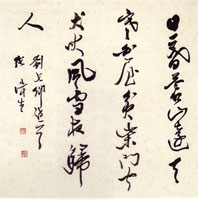 日暮蒼山遠天
寒白屋貧柴門聞
犬吠風雪夜歸
人
劉長卿